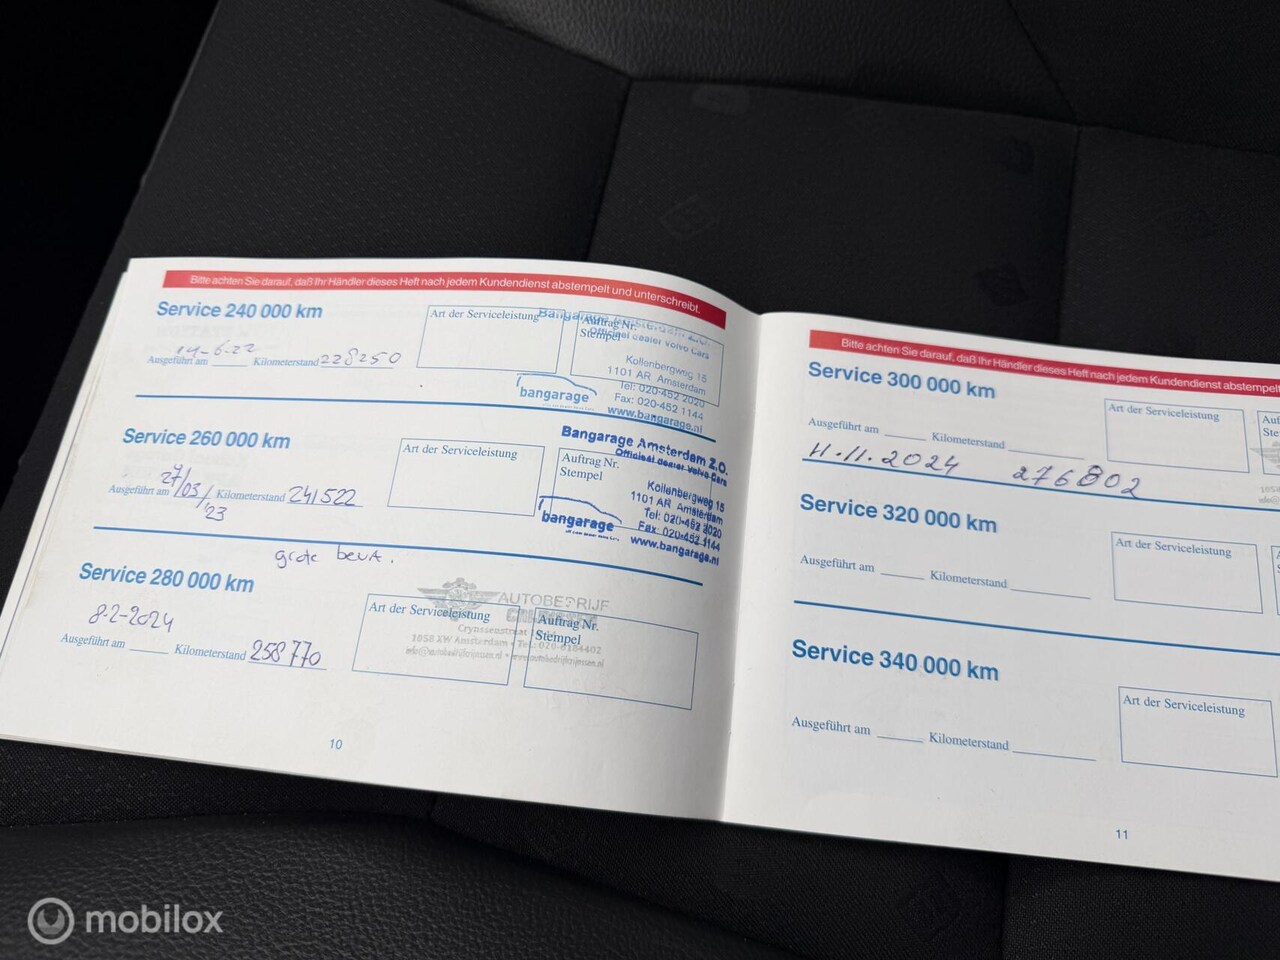 Bitte achten Sie darauf, daß Ihr Händler dieses Heft nach jedem Kundendienst abstempelt und unterschreibt.
Service 240 000 km
14-6-22
Ausgeführt am Kilometerstand 228250
Art der Serviceleistung
Auftrag Nr.
Stempel
Officieel dealer Volvo Cars
Kollenbergweg 15
1101 AR Amsterdam
Tel: 020-452 2020
Fax: 020-452 1144
www.bangarage.nl
bangarage
Service 260 000 km
27/03/'23
Ausgeführt am Kilometerstand 241522
Art der Serviceleistung
Auftrag Nr.
Stempel
Bangarage Amsterdam Z.O.
Officieel dealer Volvo Cars
Kollenbergweg 15
1101 AR Amsterdam
Tel: 020-452 2020
Fax: 020-452 1144
www.bangarage.nl
bangarage
grote beurt.
Service 280 000 km
8-2-2024
Ausgeführt am Kilometerstand 258770
Art der Serviceleistung
Auftrag Nr.
Stempel
AUTOBEDRIJF
Crynssenstraat
1058 XW Amsterdam • Tel.: 020-6184402
10
Bitte achten Sie darauf, daß Ihr Händler dieses Heft nach jedem Kundendienst abstempelt
Service 300 000 km
Ausgeführt am Kilometerstand
11.11.2024 276802
Art der Serviceleistung
Service 320 000 km
Ausgeführt am Kilometerstand
Art der Serviceleistung
Service 340 000 km
Ausgeführt am Kilometerstand
Art der Serviceleistung
11
mobilox